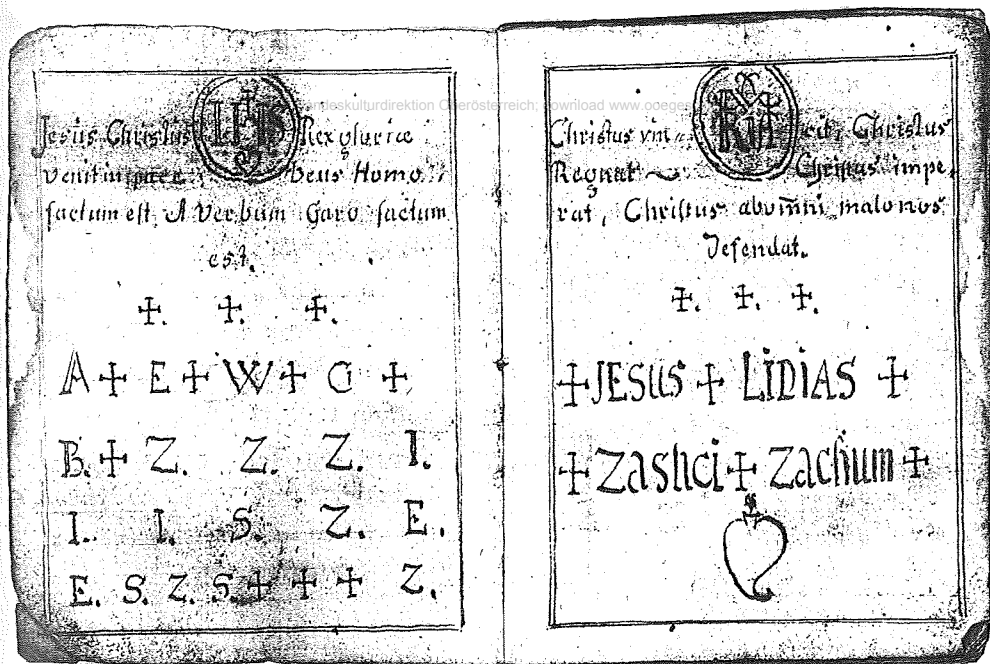 Landeskulturdirektion Oberösterreich; download www.ooegeschichte
Jesus Christus IHS Rex gloriæ
venit in pace Deus Homo
factum est, et Verbum Caro factum
est.
✢. ✢. ✢.
A ✢ E ✢ W ✢ G ✢
B. ✢ Z. Z. Z. I.
I. I. S. Z. E.
E. S. Z. S. ✢ ✢ ✢ Z.
Christus vin= cit, Christus
Regnat Christus impe,
rat, Christus ab om̄ni malo nos
Defendat.
✢. ✢. ✢.
✢ JESUS ✢ LIDIAS ✢
✢ Zashci ✢ Zachum ✢